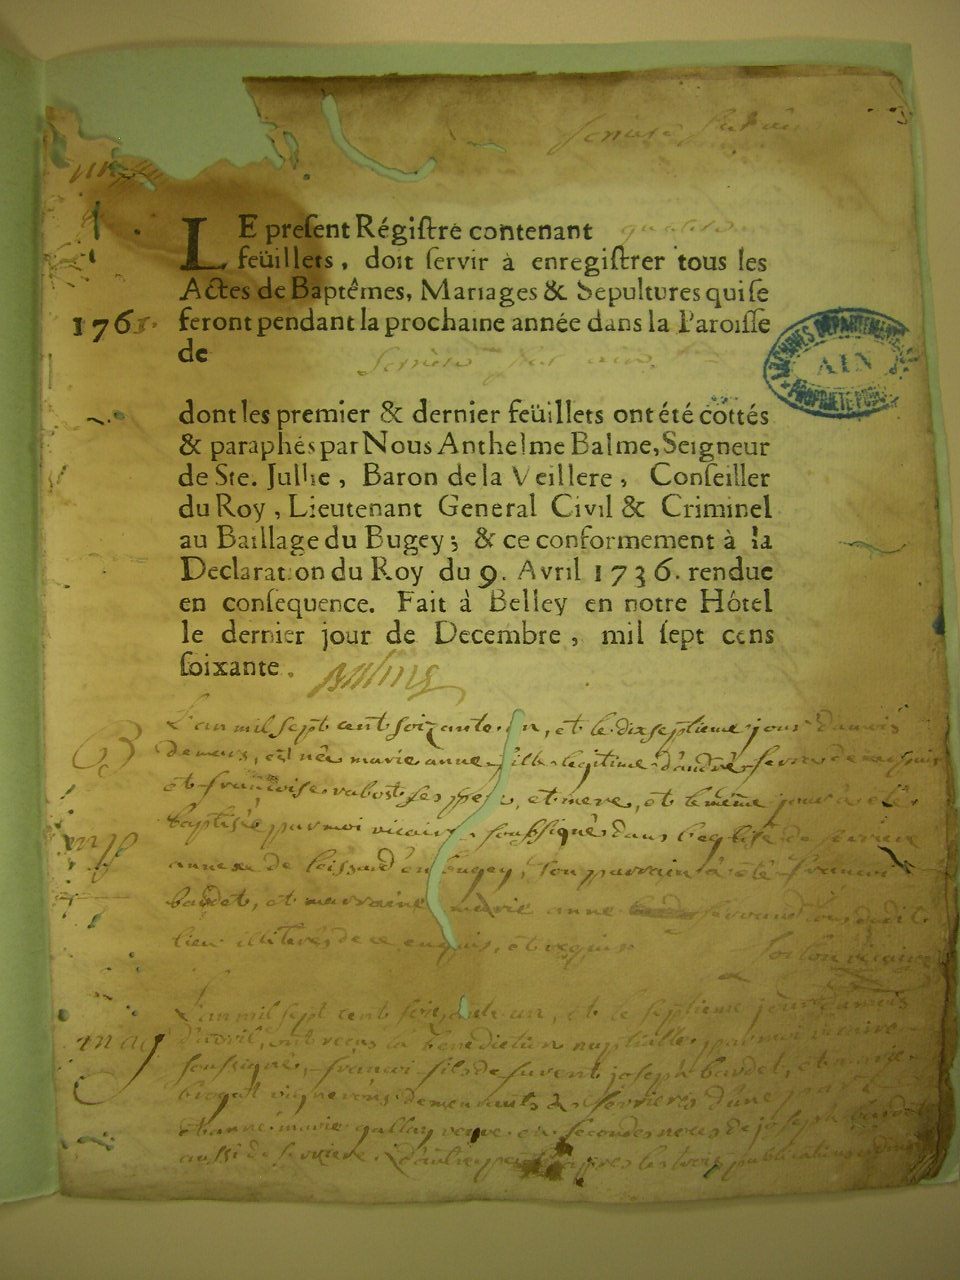 LE preſent Régiſtre contenant
feüillets, doit ſervir à enregiſtrer tous les
Actes de Baptêmes, Mariages & Sepultures qui ſe
1761. feront pendant la prochaine année dans la Paroiſſe
de
ARCHIVES DÉPARTEMENTALES
AIN
PROPRIÉTÉ PUBLIQUE
dont les premier & dernier feüillets ont été cottés
& paraphés par Nous Anthelme Balme, Seigneur
de Ste. Jullie, Baron de la Veillere, Conſeiller
du Roy, Lieutenant General Civil & Criminel
au Baillage du Bugey; & ce conformement à la
Declaration du Roy du 9. Avril 1736. rendue
en conſequence. Fait à Belley en notre Hôtel
le dernier jour de Decembre, mil ſept cens
ſoixante.
B L'an mil sept cent soixante un, et le dixseptieme jour du mois
de mars, est née marie anne fille legitime d'andré
et françoise rabost ses pere, et mere, et le même jour a été
baptisée par moi vicaire soussigné dans l'eglise de serriere
annexe de loissard en bugey, son parrain a été francoi
baudet, et marraine marie anne servand tous dudit
lieu illiterés de ce enquis, et requis
vicaire
mag L'an mil sept cent soixante un, et le septieme jour du mois
d'avril, ont reçus la benediction nuptialle, par moi vicaire
soussigné, francoi fils de fuvent joseph baudet, et
vignerons demeurants à serrieres d'une part
et anne marie gallay veuve en secondes noces de joseph baudet
aussi de serriere d'autre part apres les trois publications